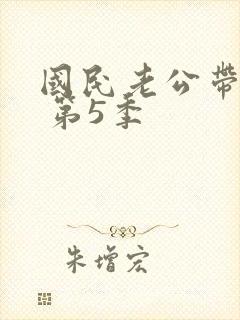 國民老公帶
第5季
朱增宏